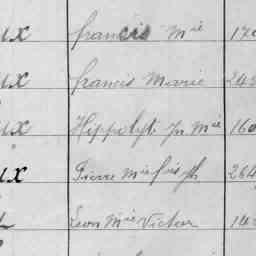 ux francis Mie 170
ux francis Marie 245
ux Hippolyte Jn Mie 160
ux Pierre Mie 264
Leon Mie Victor 142